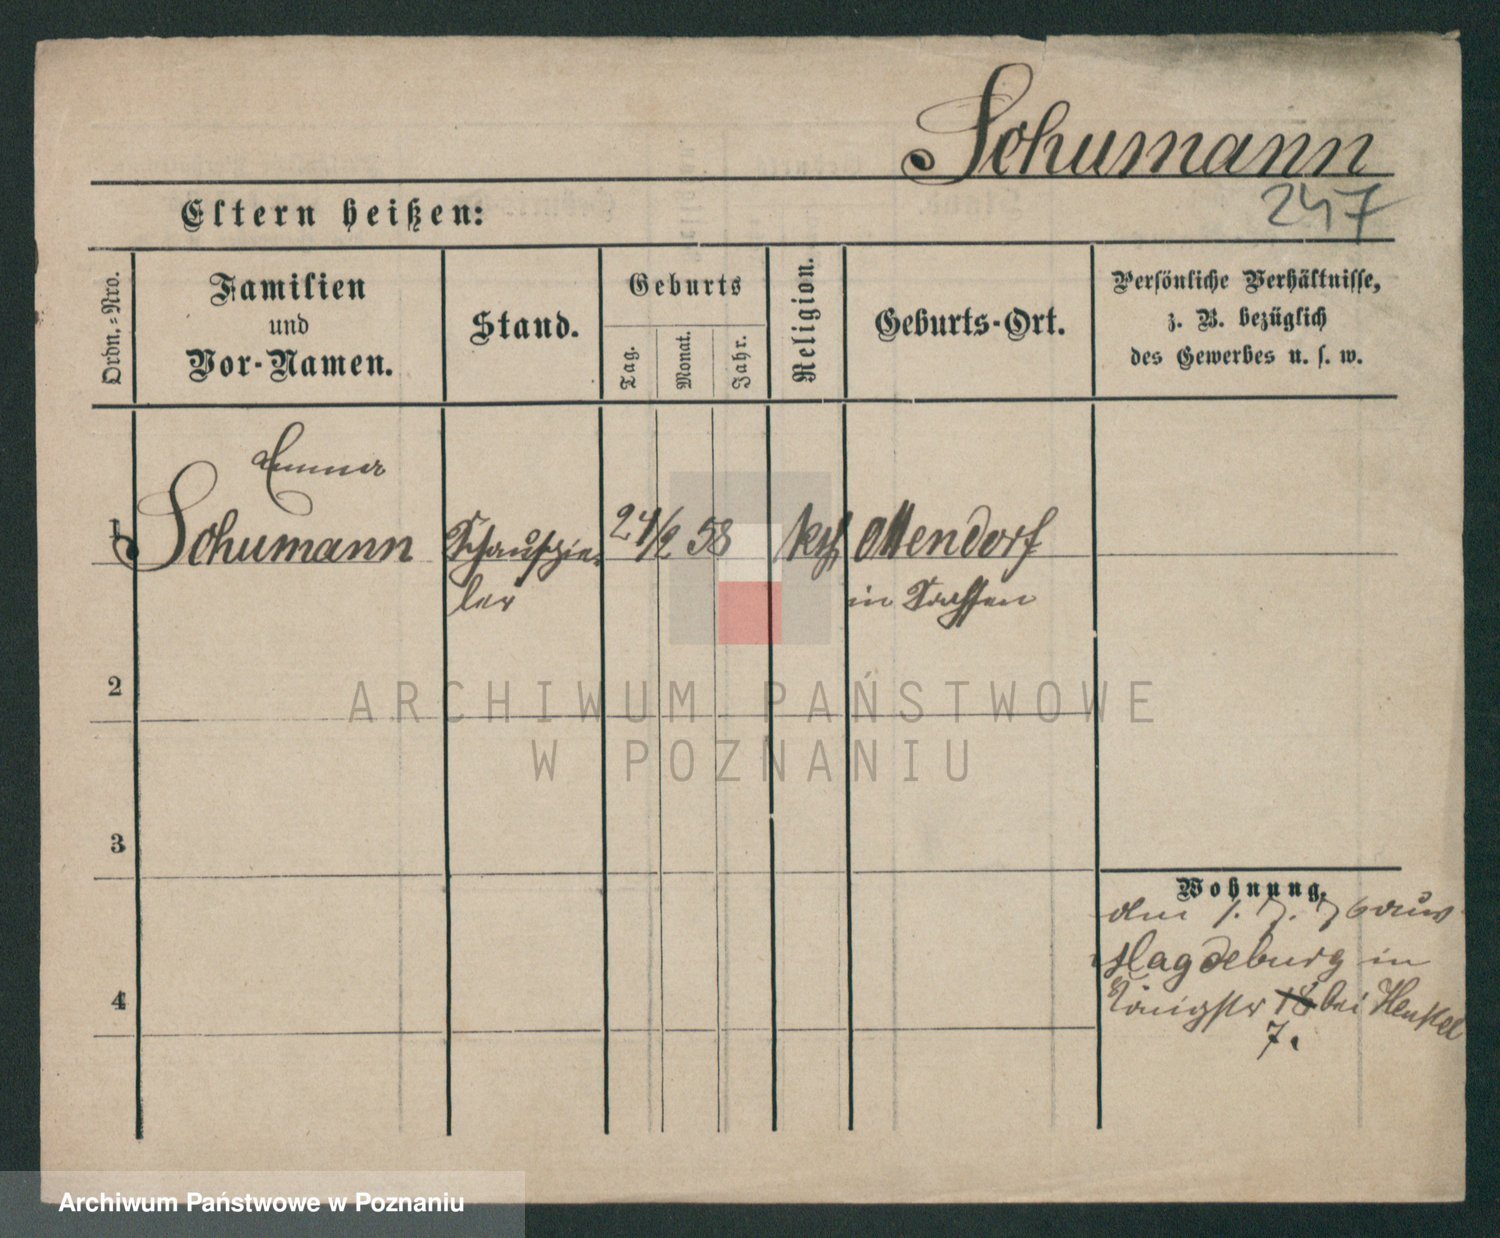 Schumann
247
Eltern heißen:
Ordn.-Nro.
Familien
und
Vor-Namen.
Stand.
Geburts
Tag.
Monat.
Jahr.
Religion.
Geburts-Ort.
Persönliche Verhältnisse,
z. B. bezüglich
des Gewerbes u. s. w.
Emma
1 Schumann Schauspie- 24/2 58 Ottendorf
ler in Sachsen
2
ARCHIWUM PAŃSTWOWE
W POZNANIU
3
Wohnung.
den 1. 7. 76 aus
Magdeburg in
Königstr 18 bei Henkel
7.
4
Archiwum Państwowe w Poznaniu